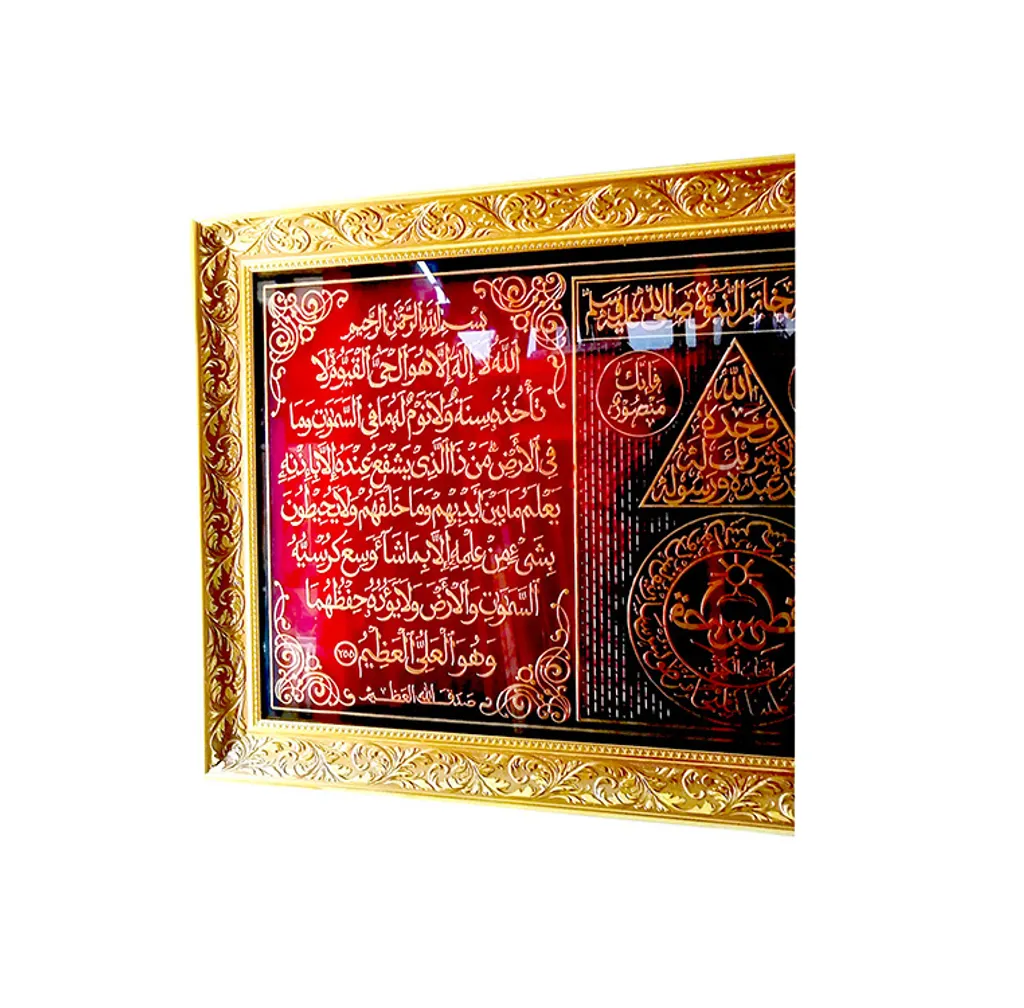 بِسْمِ اللَّهِ الرَّحْمَٰنِ الرَّحِيمِ
اَللَّهُ لَا إِلَٰهَ إِلَّا هُوَ الْحَيُّ الْقَيُّومُ لَا
تَأْخُذُهُ سِنَةٌ وَلَا نَوْمٌ لَهُ مَا فِي السَّمَٰوَٰتِ وَمَا
فِي الْأَرْضِ مَنْ ذَا الَّذِي يَشْفَعُ عِنْدَهُ إِلَّا بِإِذْنِهِ
يَعْلَمُ مَا بَيْنَ أَيْدِيهِمْ وَمَا خَلْفَهُمْ وَلَا يُحِيطُونَ
بِشَيْءٍ مِنْ عِلْمِهِ إِلَّا بِمَا شَاءَ وَسِعَ كُرْسِيُّهُ
السَّمَٰوَٰتِ وَالْأَرْضَ وَلَا يَؤُدُهُ حِفْظُهُمَا
وَهُوَ الْعَلِيُّ الْعَظِيمُ ٢٥٥
صدق الله العظيم
خاتم النبوة صلى الله عليه وسلم
فإنك
منصور
الله
وحده
لا شريك له
عبده ورسوله